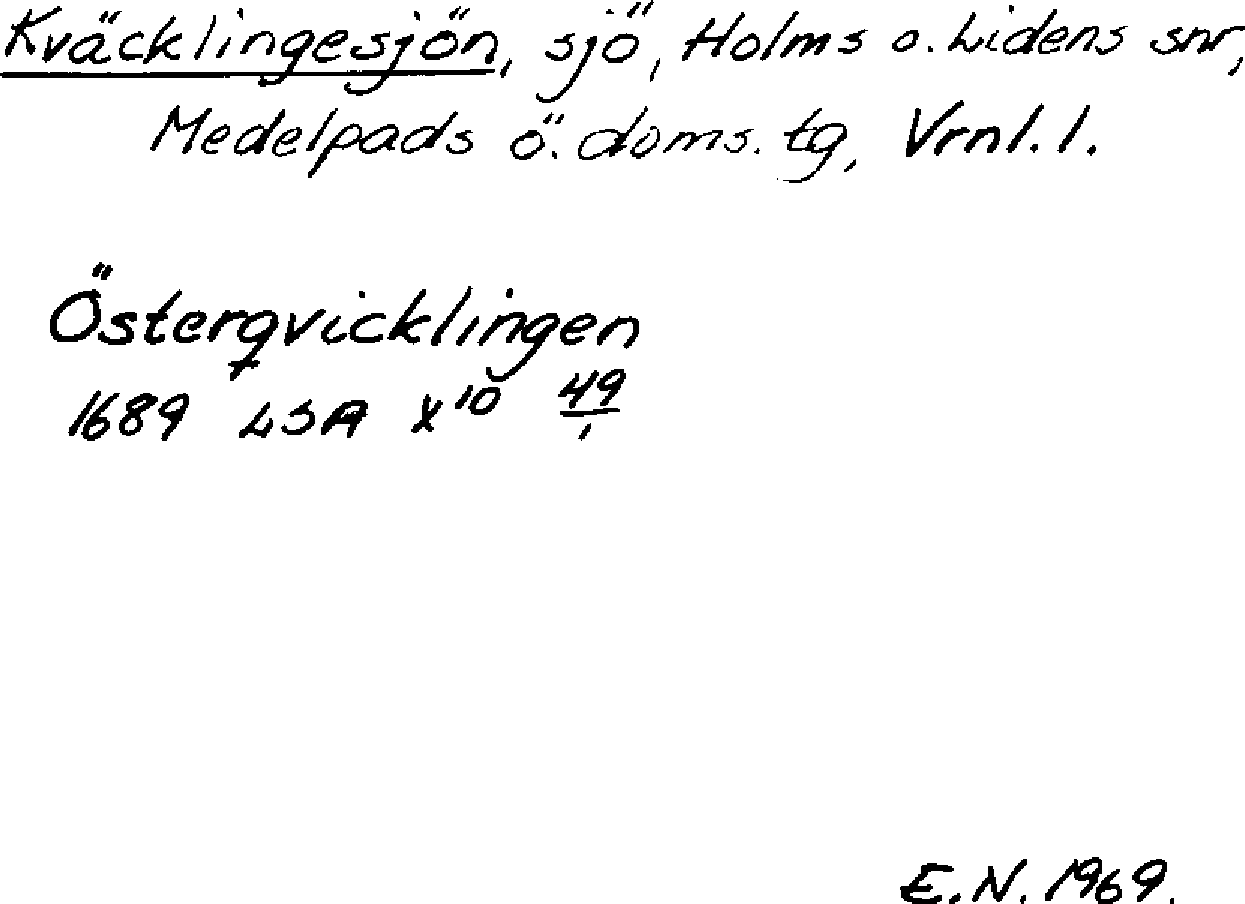 Kväcklingesjön, sjö, Holms o. Lidens snr,
Medelpads ö. doms. tg, Vrnl. l.
Österqvicklingen
1689 LSA X¹⁰ 49/1
E.N. 1969.